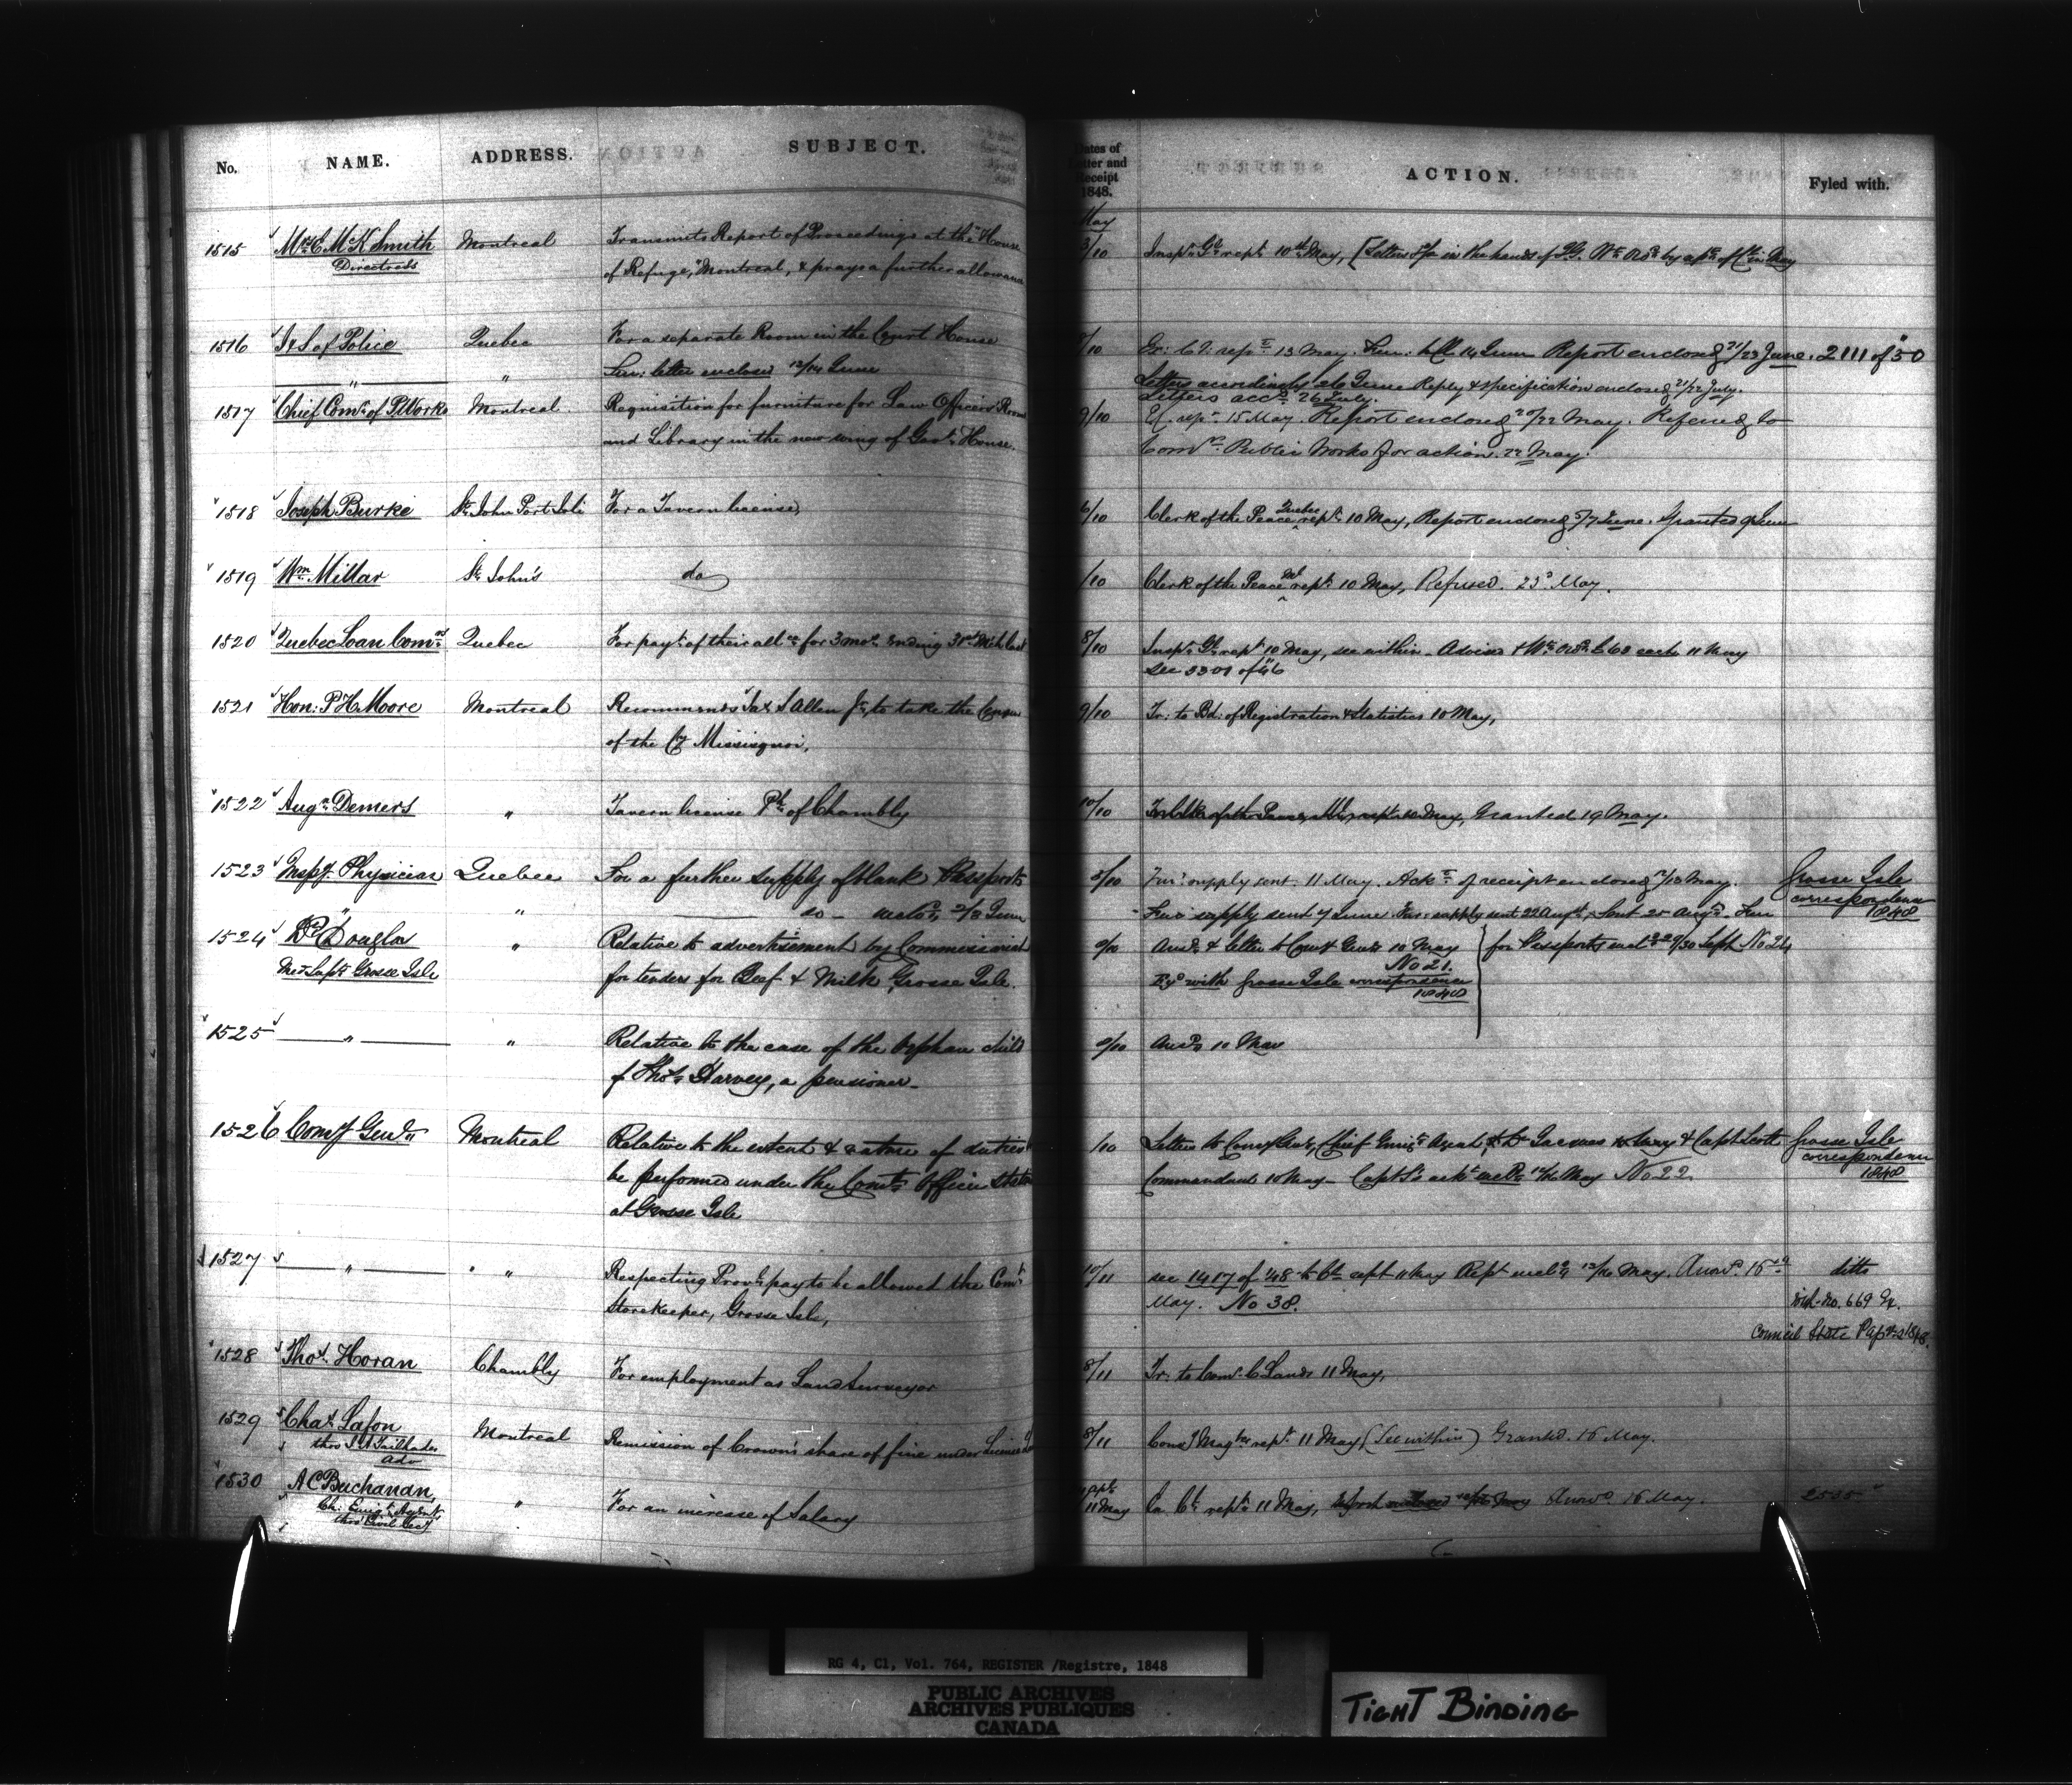 No. NAME. ADDRESS. SUBJECT.
Dates of Letter and Receipt 1848. ACTION. Fyled with.
May
1515 Mrs E McK Smith Montreal Transmits Report of Proceedings at the "House
Directress of Refuge," Montreal, & prays a further allowance
3/10 Insp. Gl. rept. 10th May, [Letters in the hands of
1516 I & S of Police Quebec For a separate Room in the Court House
" " Fur: letter enclosed 12/14 June
/10 rept. 13 May. Fur: 14 June Report enclosed 21/23 June. 2111 of "50
Letters accordingly 26 June Reply & specification enclosed 21/22 July.
Letters accd. 26 July.
1517 Chief Comr. of P Works Montreal. Requisition for furniture for Law Officers Room
and Library in the new wing of Govt. House.
9/10 rept. 15 May. Report enclosed 20/22 May. Refered to
Comrs. Public Works for action. 22 May.
1518 Joseph Burke St. John Port Joli For a Tavern license
6/10 Clerk of the Peace Quebec rept. 10 May, Report enclosed 5/7 June. Granted 9 June
1519 Wm. Millar St. John's do
/10 Clerk of the Peace rept. 10 May, Refused. 23d May.
1520 Quebec Loan Comrs. Quebec For payt. of their allce for 3 mos. ending 31st Mch last
8/10 Inspr. Gl. rept. 10 May, see within - Advised & Wt. each 11 May
see 3301 of "46
1521 Hon: P H Moore Montreal Recommends Jas. S Allen Jr., to take the Census
of the Cy Missisquoi.
9/10 Tr: to Bd: of Registration & Statistics 10 May,
1522 Augn. Demers " Tavern license Ph. of Chambly
10/10 Clk of the Peace, rept. May, Granted 19 May.
1523 Inspg. Physician Quebec For a further supply of blank Passports
" " do - 2/3 June
8/10 Fur: supply sent. 11 May. Ackt. of receipt enclosed /13 May.
Fur: supply sent 7 June. Fur: supply sent 22 Augt.
Grosse Isle
correspondence
1848
1524 Dr. Douglas " Relative to advertisement by Commissariat
Med Supt. Grosse Isle for tenders for Beef & Milk, Grosse Isle.
9/10 Ansd. & letter to Comy Genl. 10 May
No 21.
with Grosse Isle correspondence
1848
for Passports 30 Sept No 24
1525 " " Relative to the case of the Orphan child
of Thos. Harvey, a pensioner -
9/10 Ansd. 10 May
1526 Comy Genl. Montreal Relative to the extent & nature of duties
be performed under the Comt. Officer
at Grosse Isle
/10 Letter to Comy Genl., Chief Emigt. Agent, & Capt Scott
Commandant 10 May - Capt S's ackt May No 22
Grosse Isle
correspondence
1848
1527 " " Respecting Provl. pay to be allowed the Comt.
Storekeeper, Grosse Isle,
10/11 see 1417 of "48 11 May Rept May. Answd. 15
May. No 38.
ditto
with no. 669 Ex.
Council State Papers 1848.
1528 Thos. Horan Chambly For employment as Land Surveyor
8/11 Tr: to Comr. C Lands 11 May,
1529 Chas. Lafon Montreal Remission of Crown's share of fine under License
thro Tailhades
adv
8/11 rept. 11 May, (See within) Granted. 16 May.
1530 A C Buchanan, " For an increase of Salary
Ch: Emigt. Agent,
thro Civil Secy
11 May rept. 11 May, Answd. 16 May.
2535
RG 4, C1, Vol. 764, REGISTER /Registre, 1848
PUBLIC ARCHIVES
ARCHIVES PUBLIQUES
CANADA
TIGHT BINDING